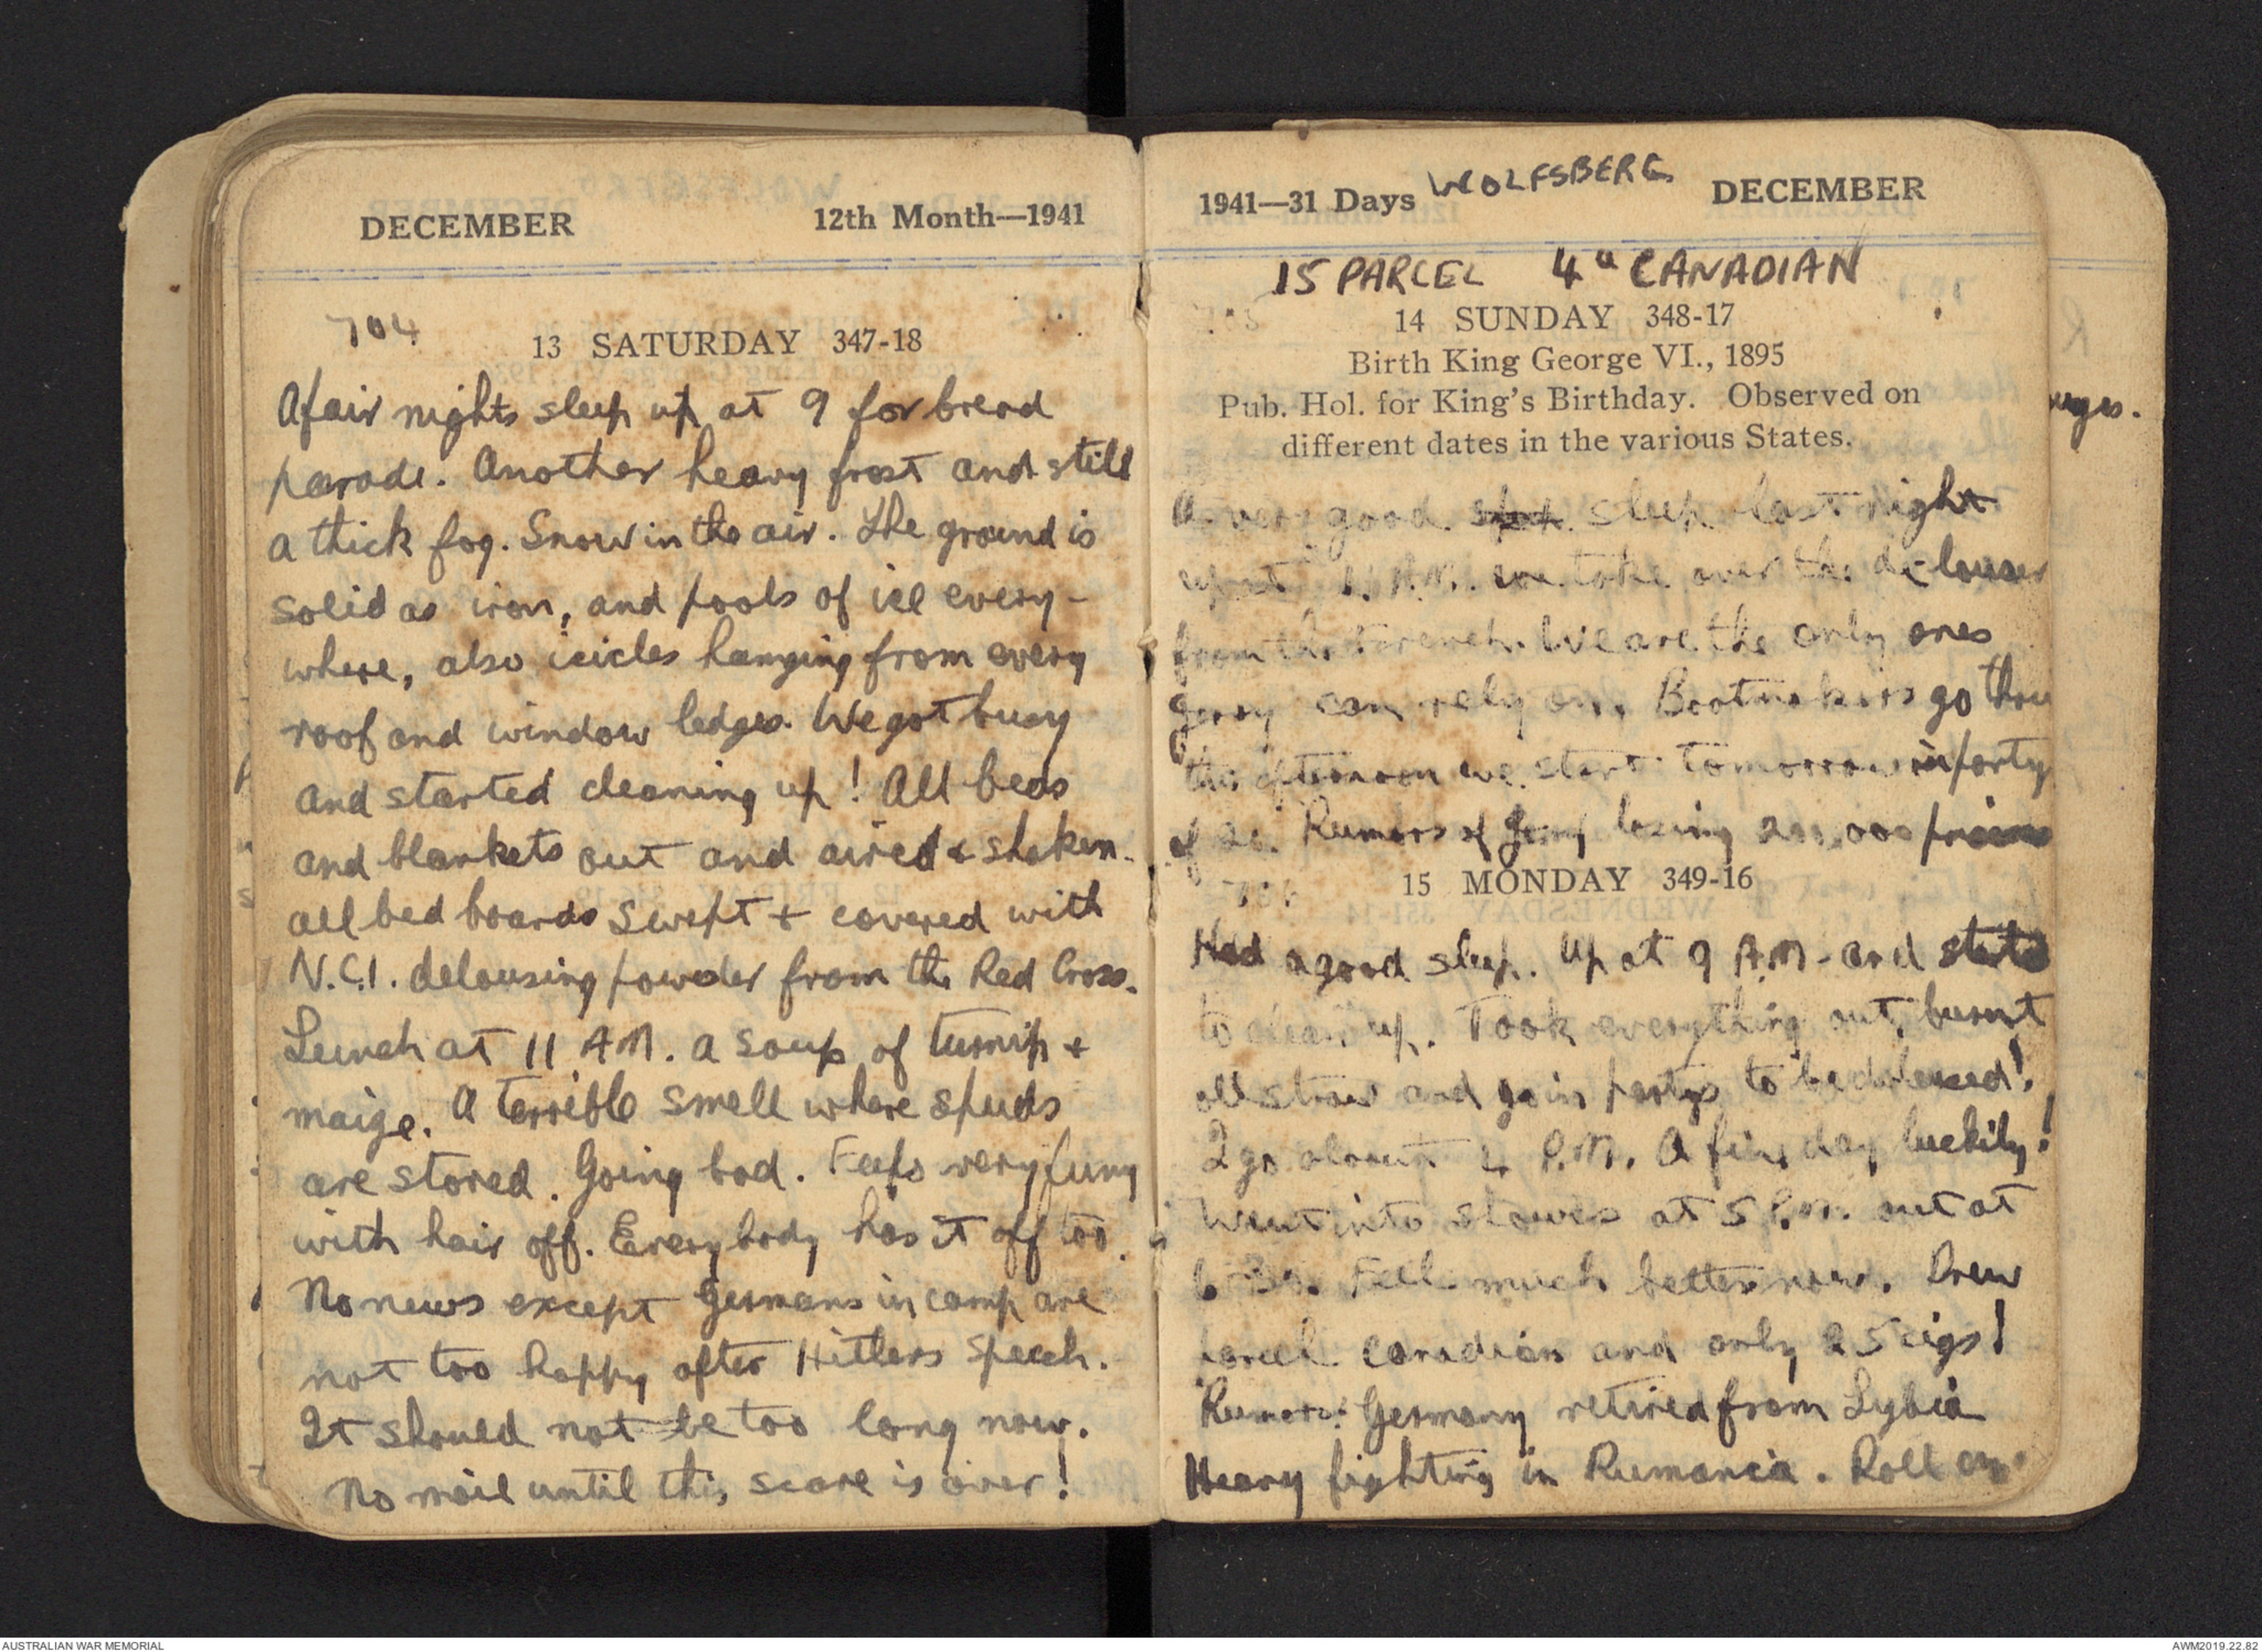 DECEMBER 12th Month—1941
704
13 SATURDAY 347-18
A fair nights sleep up at 9 for bread
parade. Another heavy frost and still
a thick fog. Snow in the air. The ground is
solid as iron, and pools of ice every-
where, also icicles hanging from every
roof and window ledges. We got busy
and started cleaning up! All beds
and blankets out and aired & shaken.
all bed boards swept + covered with
N.C.I. delousing powder from the Red Cross.
Lunch at 11 A.M. a soup of turnip +
maize. A terrible smell where spuds
are stored. Going bad. Feels very funny
with hair off. Everybody has it off too.
No news except Germans in camp are
not too happy after Hitlers speech.
It should not be too long now.
No mail until this scare is over!
1941—31 Days WOLFSBERG DECEMBER
15 PARCEL 4th CANADIAN
705
14 SUNDAY 348-17
Birth King George VI., 1895
Pub. Hol. for King's Birthday. Observed on
different dates in the various States.
A very good sleep last night
up at A.M. we take over the delouser
from the French. We are the only ones
Jerry can rely on. Bootmakers go thru
this afternoon we start tomorrow in party
of 20. Rumors of Jerry losing 200,000
706
15 MONDAY 349-16
Had a good sleep. Up at 9 A.M. and started
to clean up. Took everything out, burnt
all straw and go in partys to be deloused!
I go about 4 P.M. A fine day luckily!
Went into showers at 5 P.M. out at
6-30. Feel much better now. Drew
parcel Canadian and only 25 cigs!
Rumors: Germany retired from Lybia
Heavy fighting in Rumania. Roll on.
AUSTRALIAN WAR MEMORIAL
AWM2019.22.82